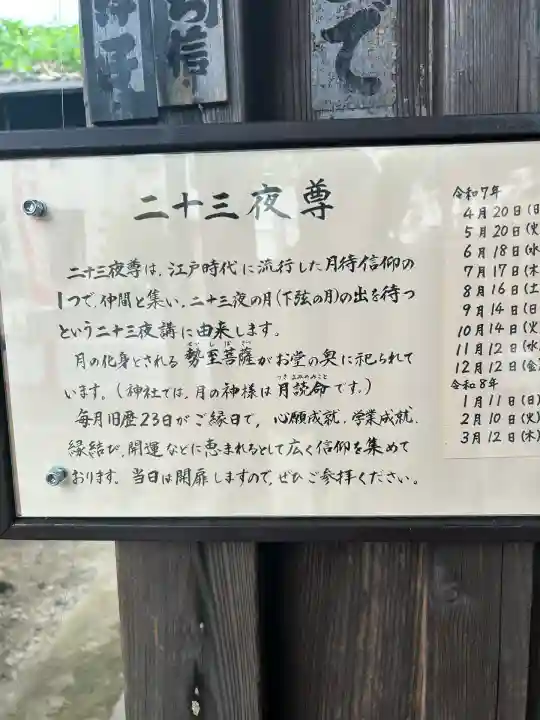 二十三夜尊
二十三夜尊は、江戸時代に流行した月待信仰の
1つで、仲間と集い、二十三夜の月(下弦の月)の出を待つ
という二十三夜講に由来します。
月の化身とされる勢至菩薩がお堂の奥に祀られて
います。(神社では、月の神様は月読命です。)
毎月旧歴23日がご縁日で、心願成就、学業成就、
縁結び、開運などに恵まれるとして広く信仰を集めて
おります。当日は開扉しますので、ぜひご参拝ください。
令和7年
4月20日(日
5月20日(火
6月18日(水
7月17日(木
8月16日(土
9月14日(日
10月14日(火
11月12日(水
12月12日(金
令和8年
1月11日(日)
2月10日(火)
3月12日(木)